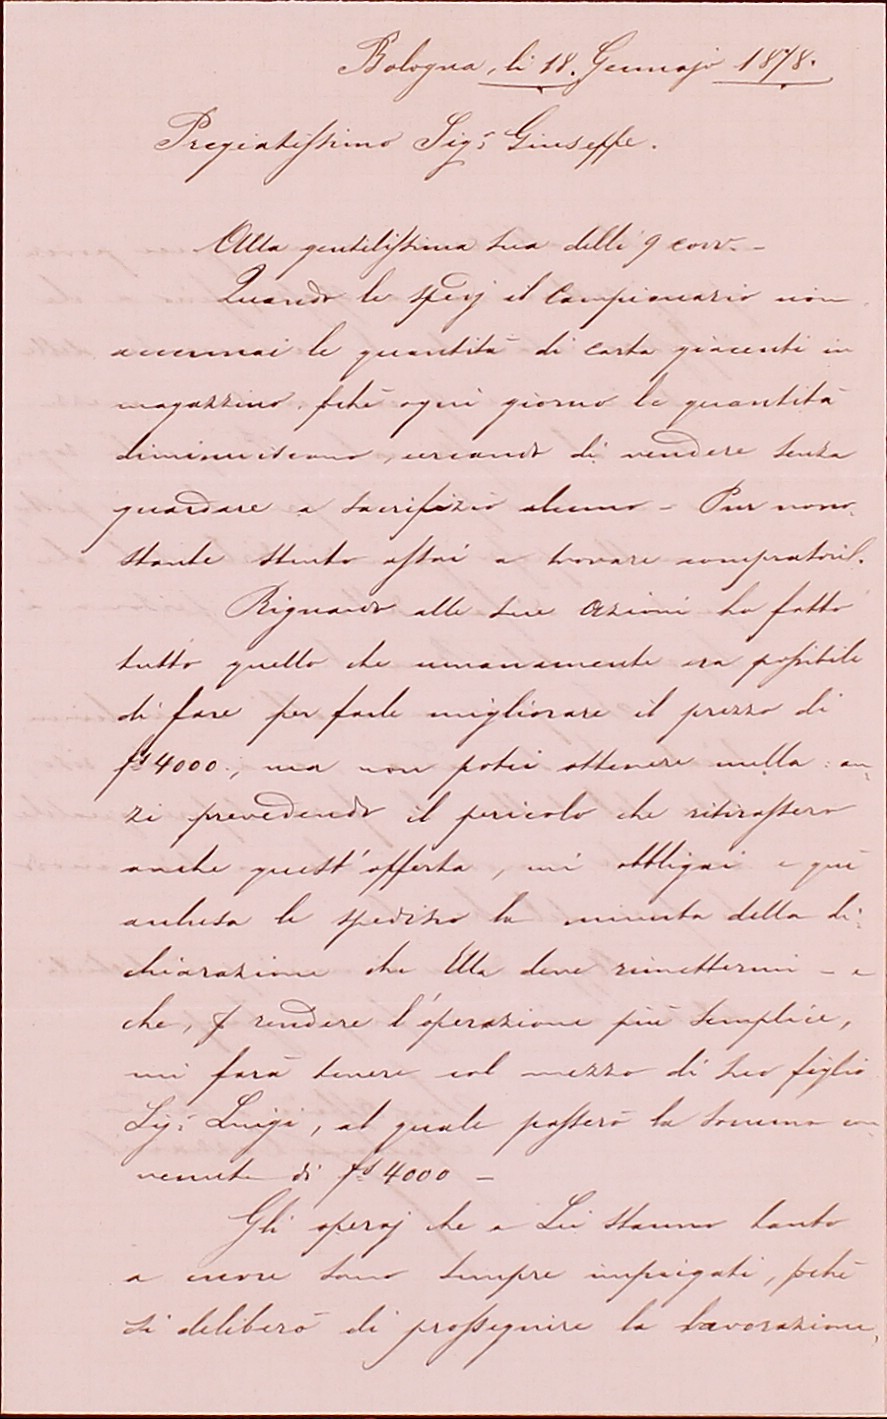 Bologna, li 18. Gennajo 1878.
Pregiatissimo Sigr. Giuseppe.
Alla gentilissima sua delli 9 corr. -
Quando le spedj il Campionario non
accennai le quantità di carta giacenti in
magazzino, pchè ogni giorno le quantità
diminuiscono, cercando di vendere senza
guardare a sacrifizio alcuno - Pur nono-
stante stento assai a trovare compratori.
Riguardo alle sue Azioni ho fatto
tutto quello che umanamente era possibile
di fare per farle migliorare il prezzo di
4000., ma non potei ottenere nulla: an-
zi prevedendo il pericolo che ritirassero
anche quest'offerta, mi obbligai e quì
anchusa le spedisco la minuta della di-
chiarazione che Ella deve rimettermi - e
che, p rendere l'operazione più semplice,
mi farà tenere col mezzo di suo figlio
Sigr. Luigi, al quale passerò la somma con-
venuta di 4000 -
Gli operaj che a Lei stanno tanto
a cuore sono sempre impiegati, pchè
si deliberò di prosseguire la lavorazione,